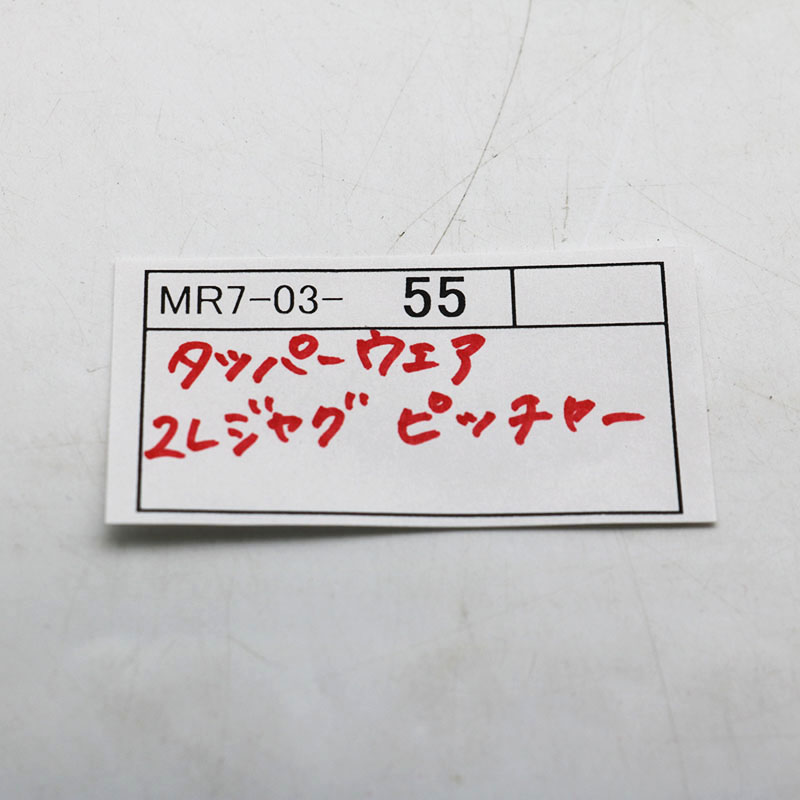 MR7-03- 55
タッパーウェア
2Lジャグ ピッチャー